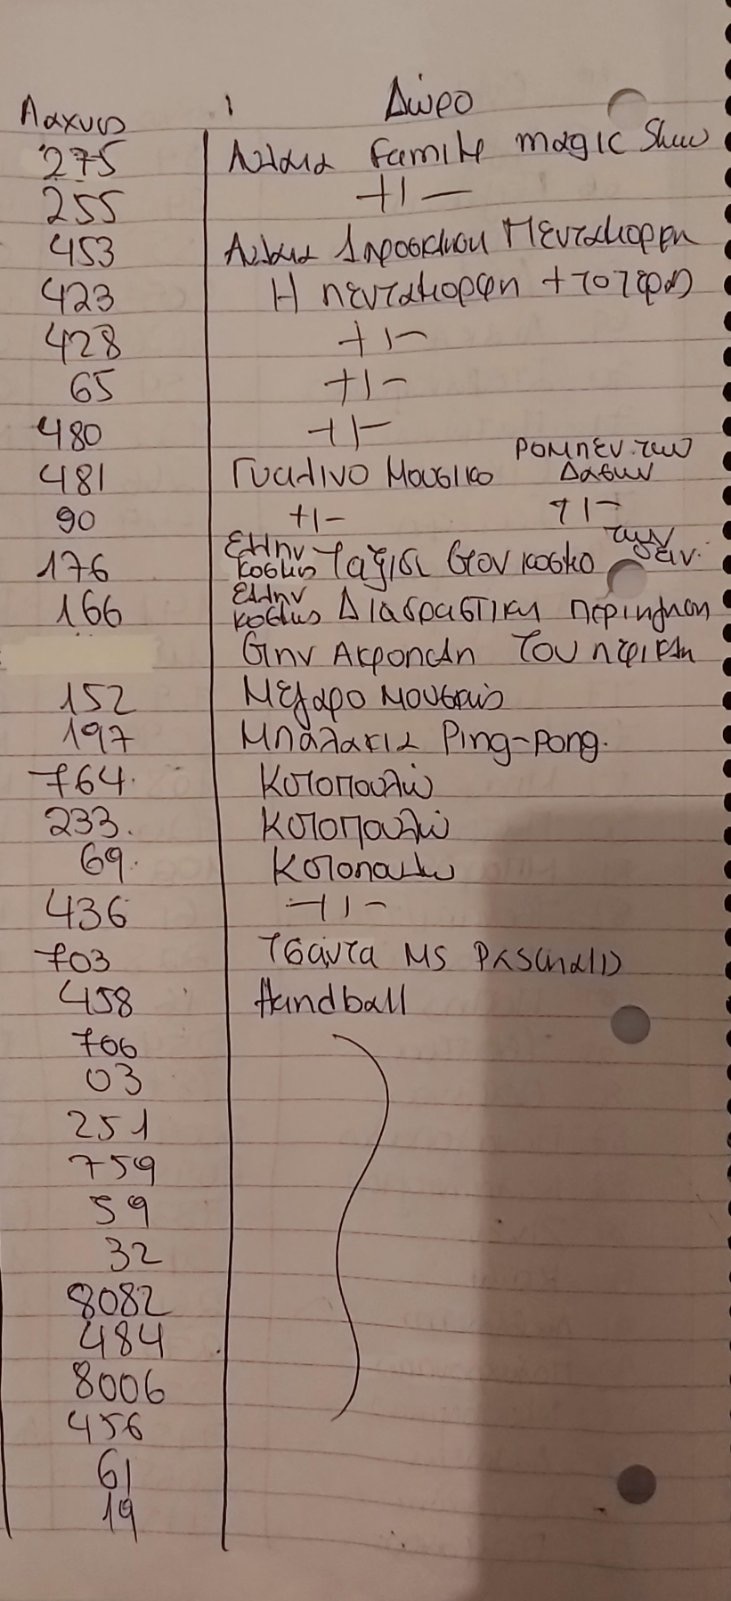 Λαχνος Δώρο
275 Αλλαια Family magic Show
255 -//-
453 Αλλαια Δημοσκιου Πενταμορφη
423 Η πενταμορφη + το τερας
428 -//-
65 -//-
480 -//-
481 Γυαλινο Μουσικο Ρομπεν των Δασων
90 -//- -//-
176 Ελλην κοσμος Ταξιδι στον κοσμο των
166 Ελλην κοσμος Διαδραστικη περιηγηση
στην Ακροπολη του περικλη
152 Μεγαρο μουσικης
197 Μπαλακια Ping-pong.
764. Κοτοπουλο
233. Κοτοπουλο
69. Κοτοπουλο
436 -//-
703 τσαντα MS
458 Handball
706
03
251
759
59
32
8082
484
8006
456
61
19